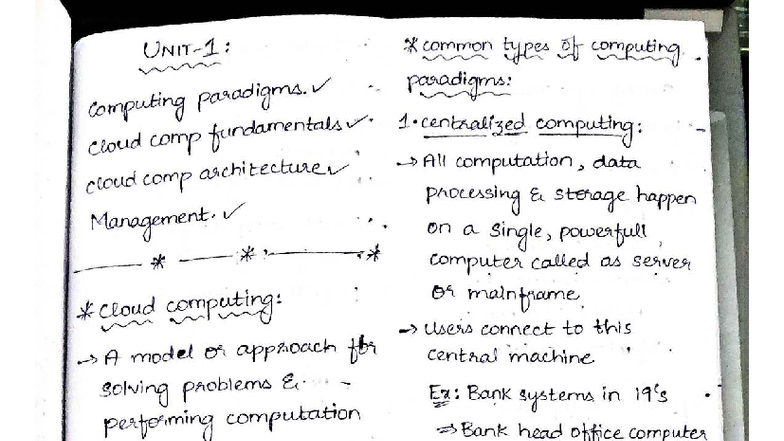 UNIT-1:
Computing paradigms. ✓
Cloud comp fundamentals ✓
cloud comp architecture ✓
Management. ✓
* cloud computing:
→ A model or approach for
solving problems &
performing computation
* common types of computing
paradigms:
1. centralized computing:
→ All computation, data
processing & storage happen
on a single, powerfull
computer called as server
or mainframe
→ Users connect to this
central machine
Ex: Bank systems in 19's
⇒ Bank head office computer